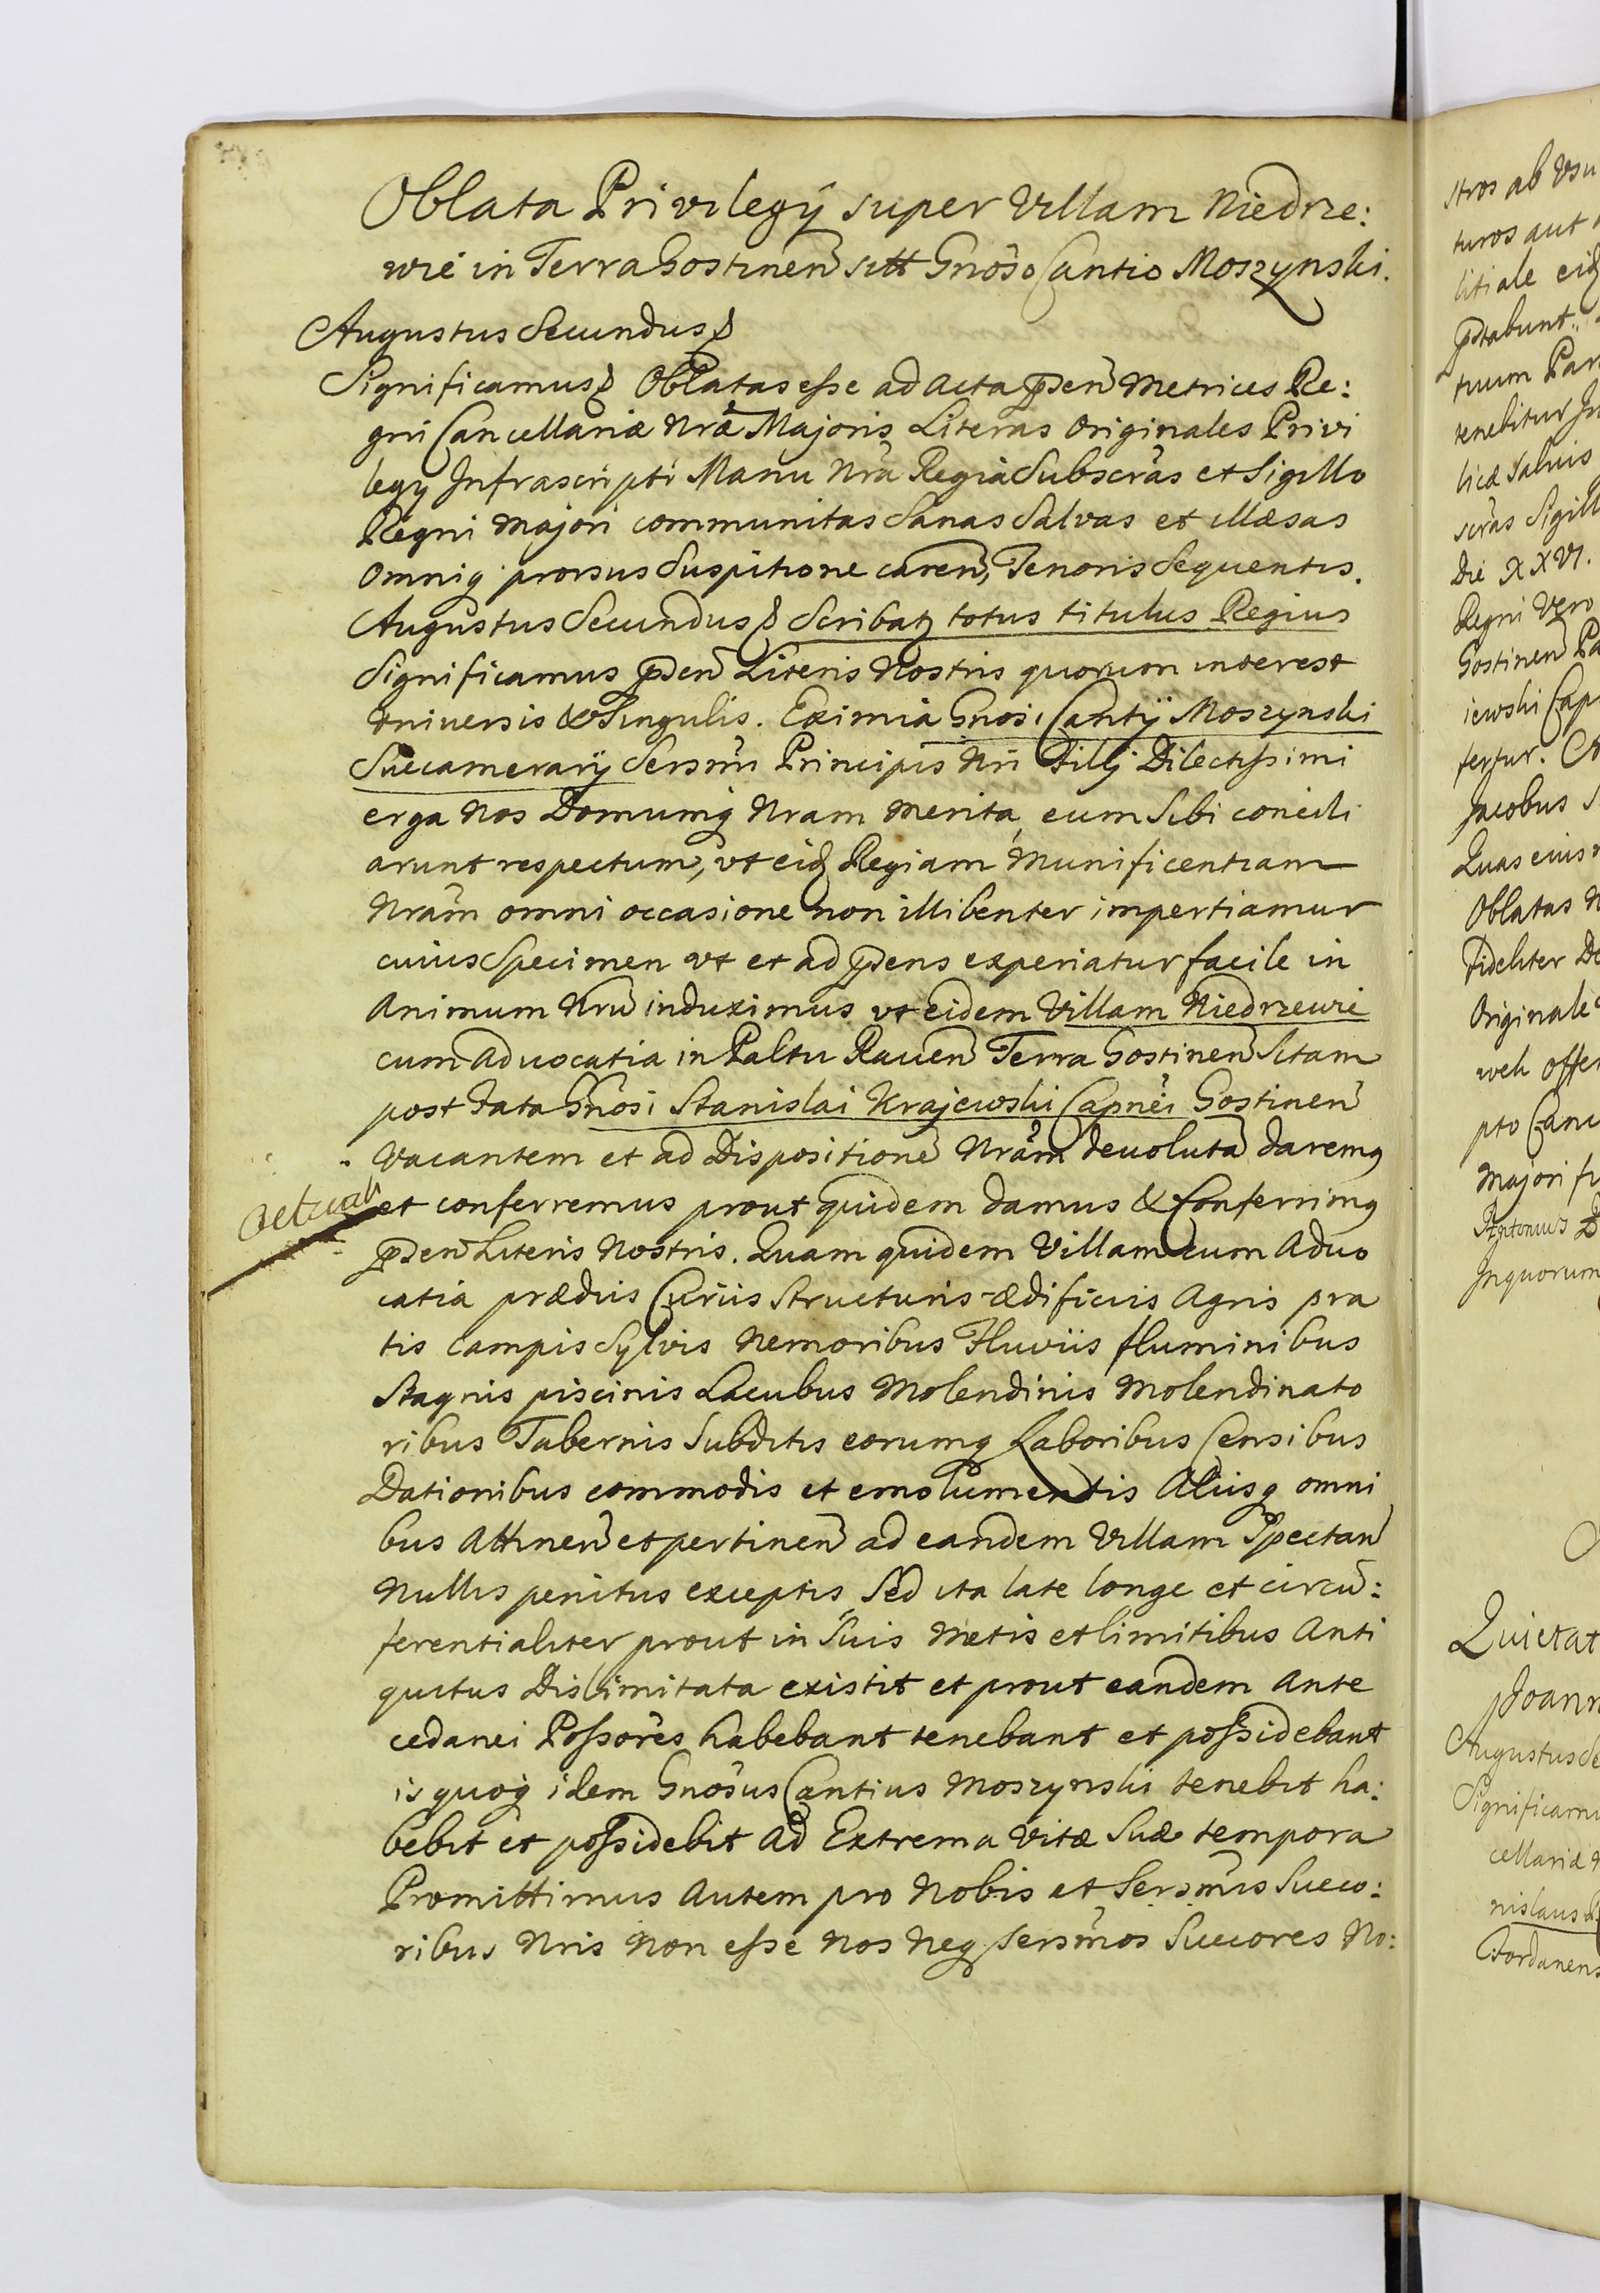 Oblata Privilegÿ super Villam Niedrze:
wie in Terra Gostinen̄ sitt Gnõso Cantio Moszynski.
Augustus Secundus
Significamus Oblatas esse ad acta p̄sen̄ Metrices Re:
gni Cancellariæ Nræ Majoris Literas Originales Privi
legy Infrascripti Manu Nrã Regia Subscrãs et Sigillo
Regni Majori communitas Sanas Salvas et illæsas
Omniq prorsus Suspitione caren̄, Tenoris Sequentis.
Augustus Secundus Scribatz totus titulus Regius
Significamus p̄sen̄ Literis Nostris quorum interest
Vniuersis & Singulis. Eximia Gnõsi Cantÿ Moszynski
Succamerarÿ Sersm̃i Principis Nri Filÿ Dilectissimi
erga Nos Domumq̃ Nram merita, eum Sibi concili
arunt respectum, vt eid Regiam Munificentiam
Nrãm omni occasione non illibenter impertiamur
cuius Specimen vt et ad p̄sens experiatur facile in
Animum Nrũ induximus vt eidem Villam Niedrzewie
cum Aduocatia in Paltu Rauen̄ Terra Gostinen̄ Sitam
post fata Gnõsi Stanislai Krajewski Capnẽi Gostinen̄
Vacantem et ad Dispositionẽ Nrãm deuolutã daremq
actuali
et conferremus prout quidem damus & Conferrimq
p̄sen̄ Literis Nostris. Quam quidem Villam cum Aduo
catia prædiis Curiis Structuris ædificiis Agris pra
tis campis Sylvis Nemoribus Fluviis fluminibus
Stagnis piscinis Lacubus Molendinis Molendinato
ribus Tabernis Subditis eorumq Laboribus Censibus
Dationibus commodis et emolumentis Aliisq omni
bus Attinen̄ et pertinen̄ ad eandem Villam Spectan̄
Nullis penitus exceptis, Sed ita late longe et circũ:
ferentialiter prout in Suis Metis et limitibus Anti
quitus Dislimitata existit et prout eandem Ante
cedanei Possõres habebant tenebant et possidebant
is quoq̃ idem Gnõsus Cantius Moszynski tenebit ha:
bebit et possidebit Ad Extrema Vitæ Suæ tempora
Promittimus Autem pro Nobis et Sersm̃is Succo:
ribus Nris Non esse Nos Neq Sersm̃os Succores No:
stros ab Vsu
turos aut
litiale eid
p̄stabunt.
tuum Par
tenebitur In
licæ Saluis
scrãs Sigill
Die XXVI.
Regni Vero
Gostinen̄ Pa
iewski Cap
fertur.
Jacobus S
Quas eius
Oblatas N
Fideliter De
Originale
weli offer
pto Canc
Majori fi
Antonius D
In quorum
Quietat
Joann
Augustus Se
Significamu
cellariæ N
nislaus
Jordanens